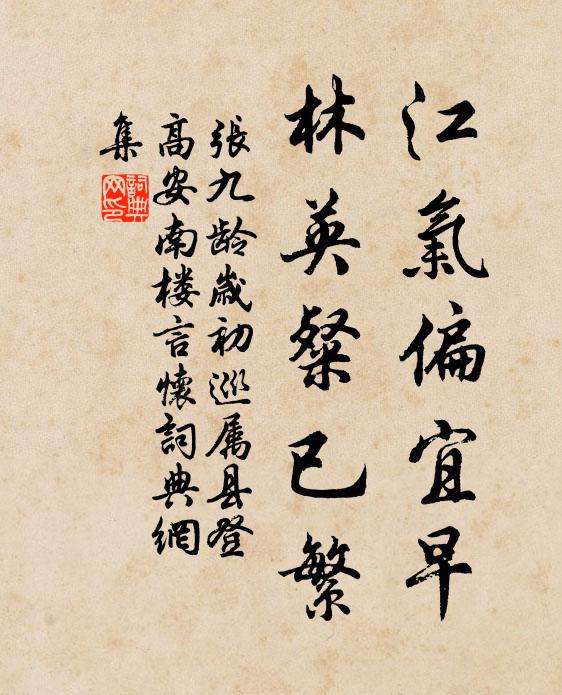 江氣偏宜早
林英粲已繁
張九龄歲初巡属县登
高安南楼言懷詞典網
集
詞典
网印